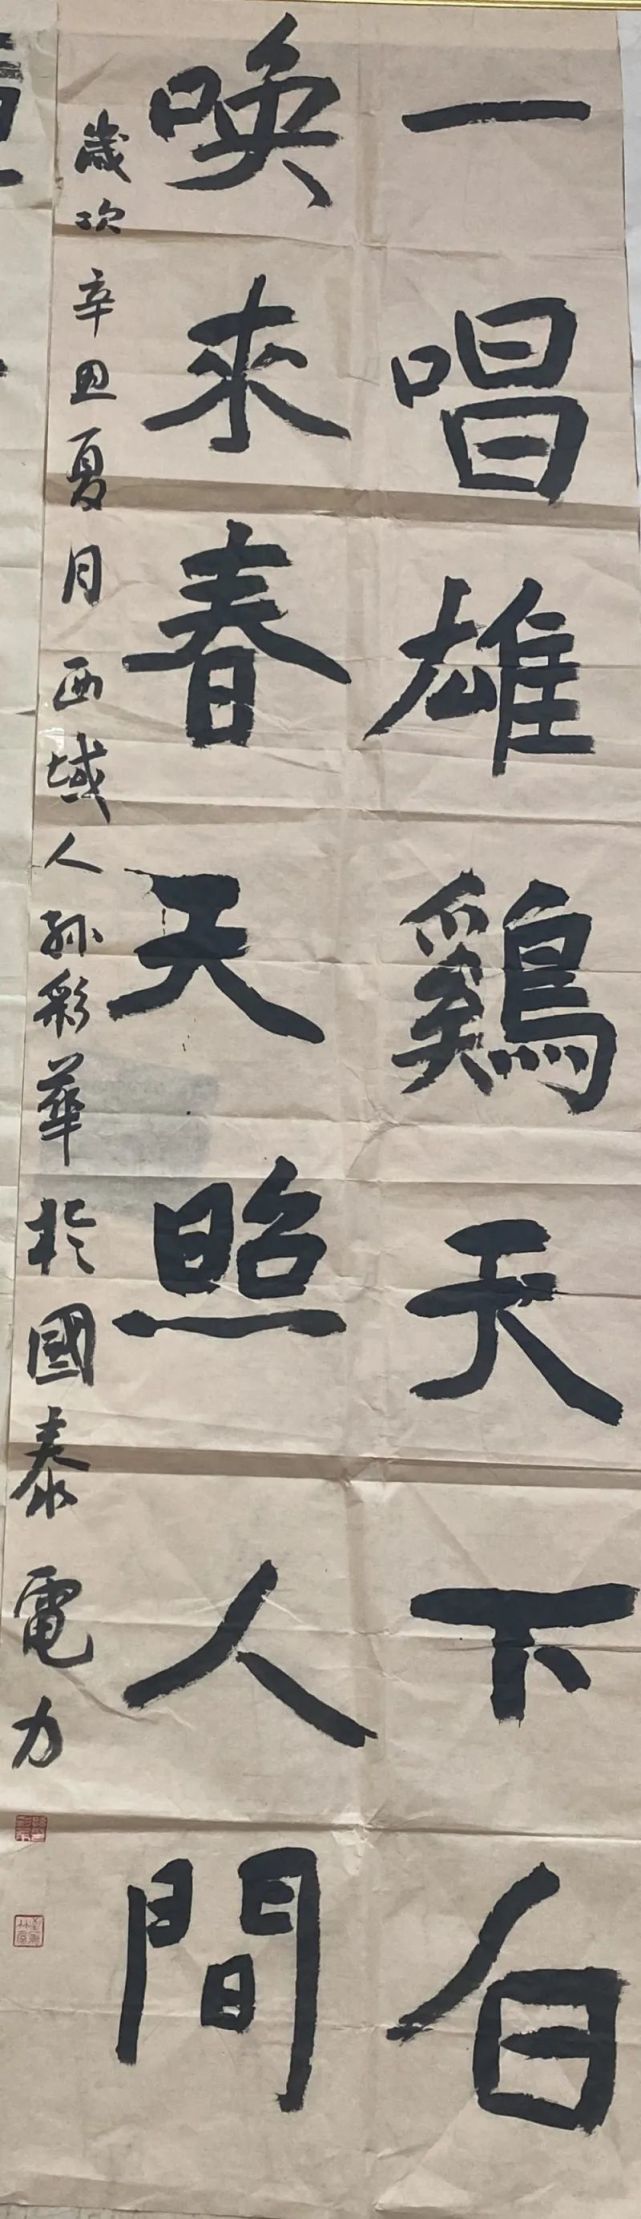 一唱雄鷄天下白
喚來春天照人間
歲次辛丑夏月西域人孫彩華於國泰電力